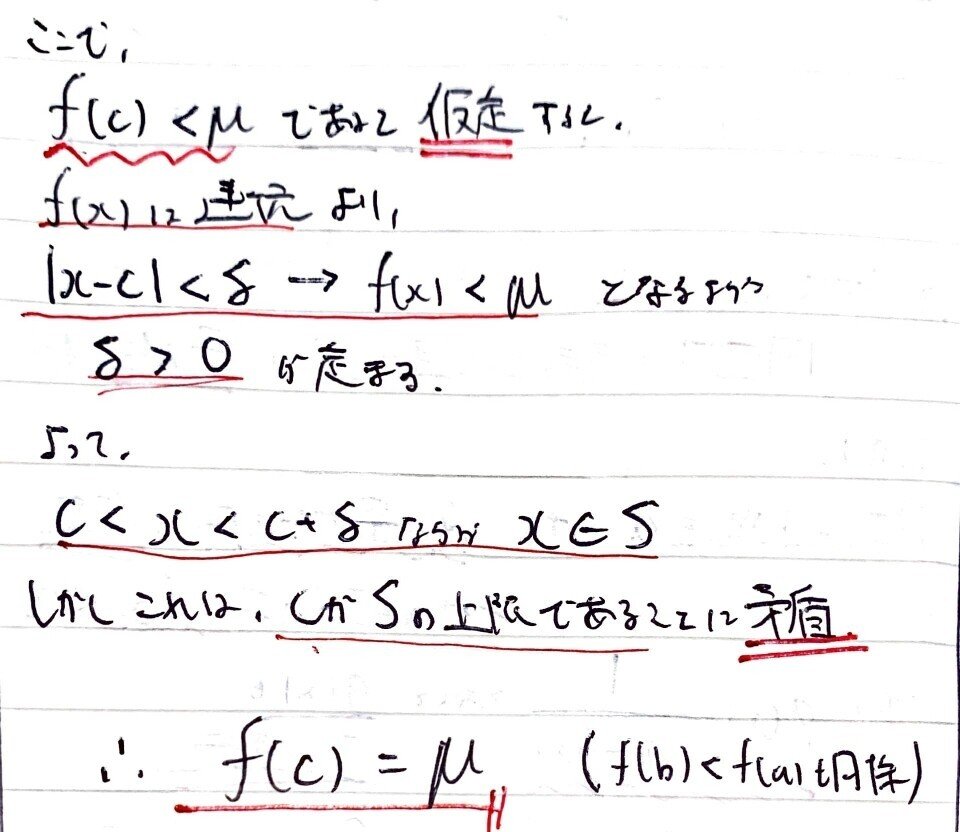 ここで,
f(c) < μ であると 仮定 すると.
f(x) は 連続 より,
|x-c| < δ → f(x) < μ となるような
δ > 0 が定まる.
よって.
c < x < c + δ ならば x ∈ S
しかし これは, cが Sの上限であることに矛盾.
∴ f(c) = μ (f(b) < f(a)も同様)